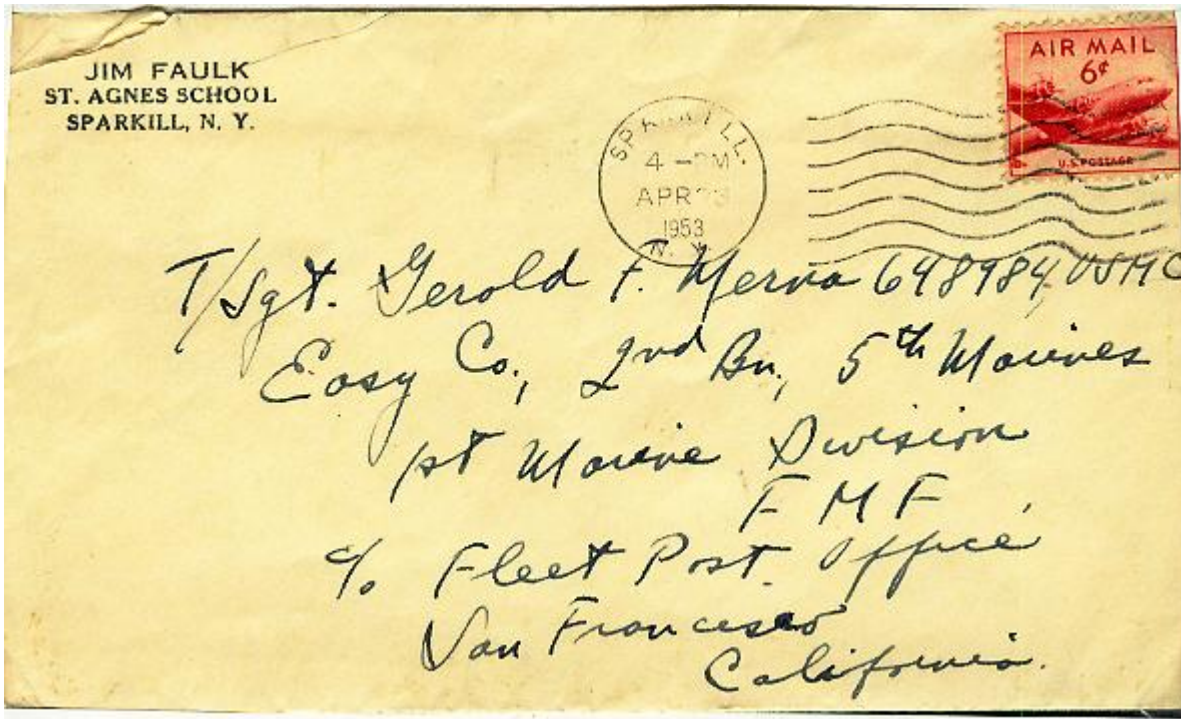 JIM FAULK
ST. AGNES SCHOOL
SPARKILL, N. Y.
AIR MAIL
6¢
U.S. POSTAGE
SPARKILL.
4 -PM
APR
1953
N. Y.
T/Sgt. Gerold F. Merna 648984, USMC
Easy Co., 2nd Bn., 5th Marines
1st Marine Division
F M F
c/o Fleet Post Office
San Francisco
California.